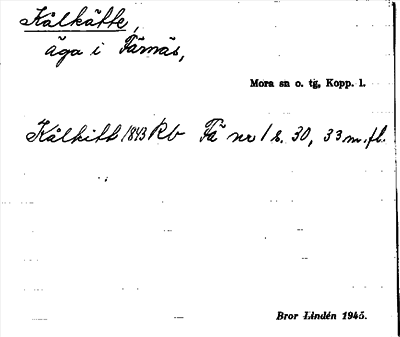 Kålkätte,
äga i Färnäs,
Mora sn o. tg, Kopp. l.
Kålkitt 1843 Rb Fä nr 1 s. 30, 33 m. fl.
Bror Lindén 1945.